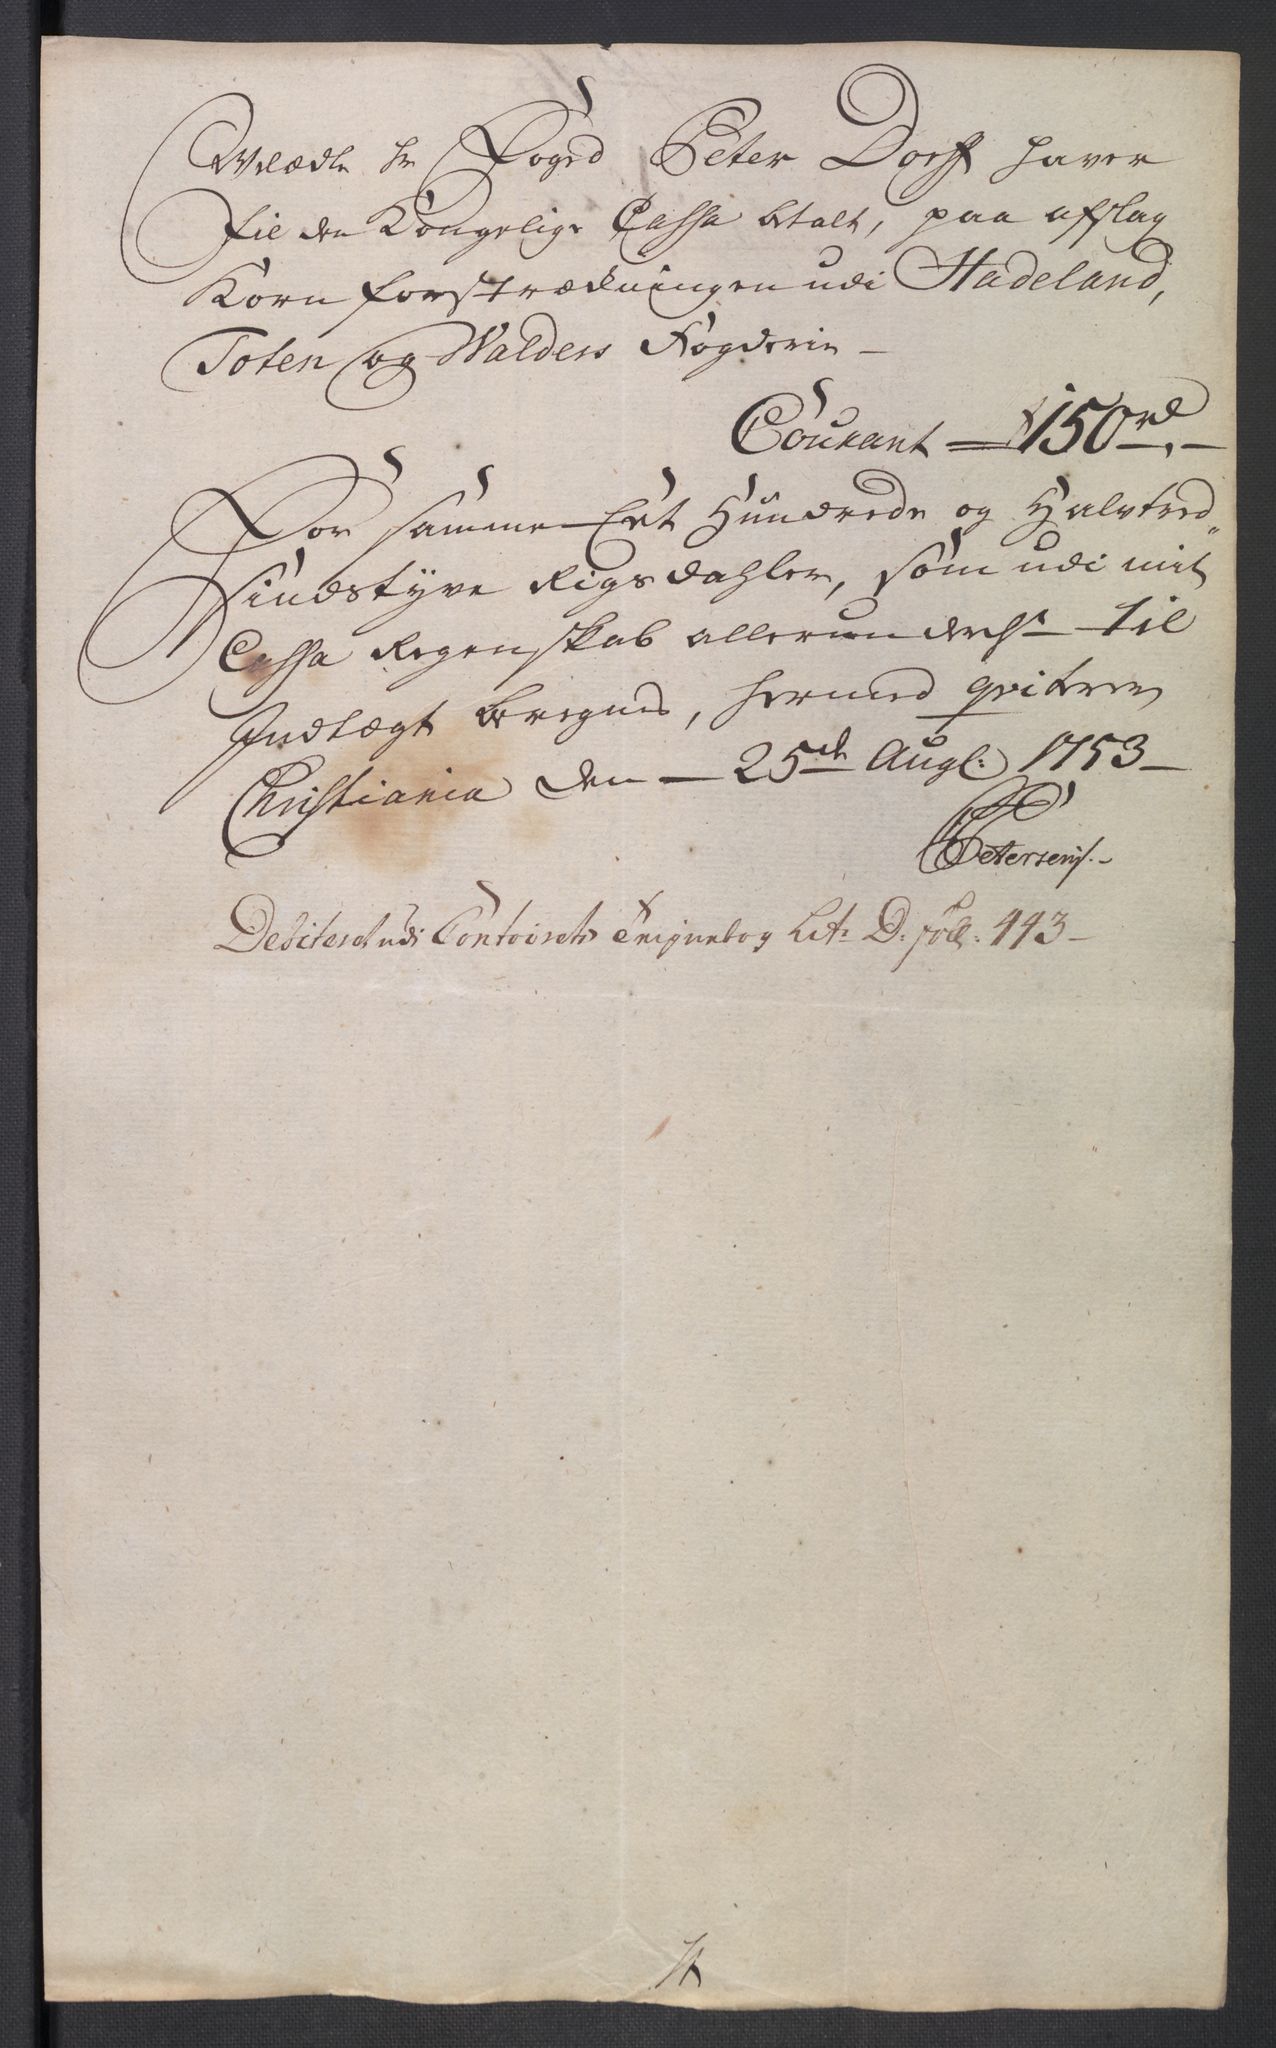 Velædle hr Foged Peter Dorff haver
til den Kongelige Cassa betalt, paa afslag
Kornforstrækningen udi Hadeland,
Toten og Walders Fogderie –
Courant – 150 rd –
For samme Eet Hundrede og Halvtred„
sindstyve Rigsdahler, som udi mit
Cassa Regenskab allerunderdst til
Indtægt bregnes, hermed qviteres
Christiania den – 25de Augl: 1753 –
Petersen
Debiteret udi Contoirets Teignebog Lit: D: foll: 443 –